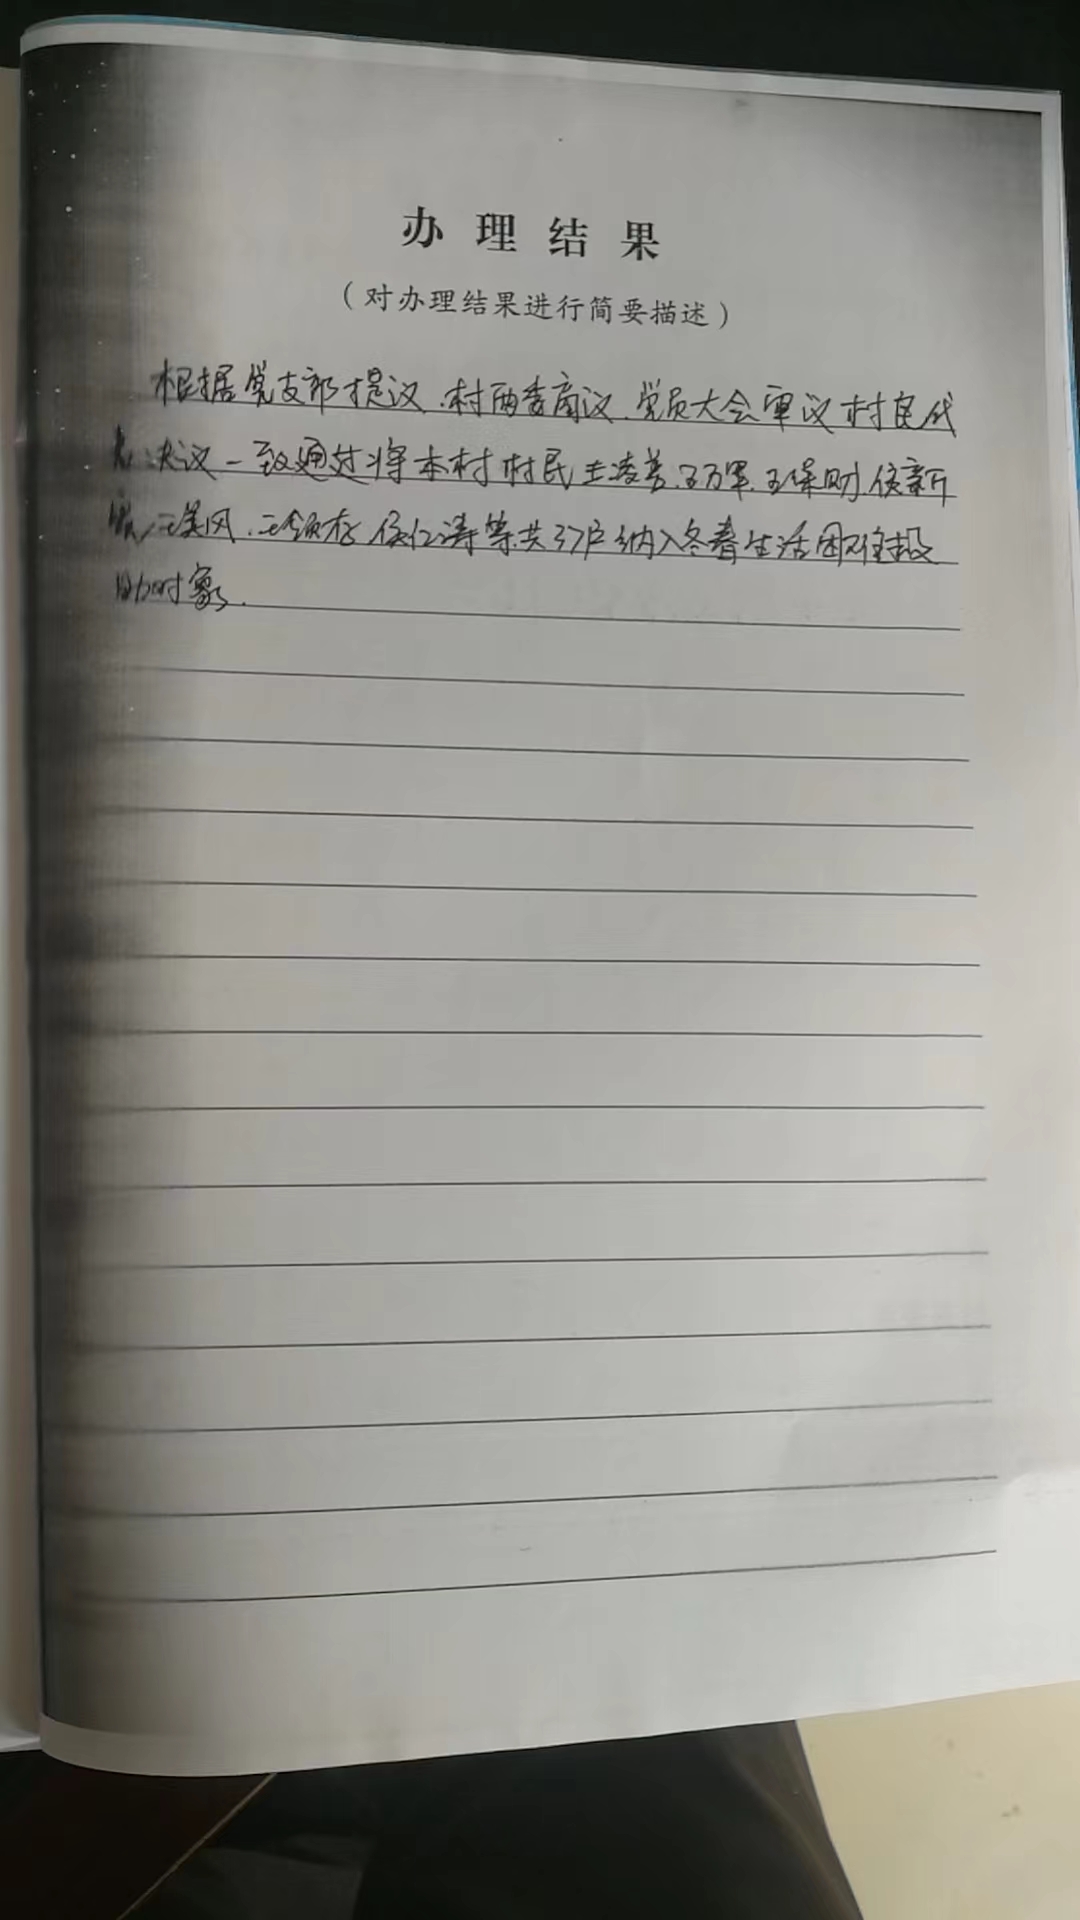 办理结果
（对办理结果进行简要描述）
根据党支部提议.村两委商议.党员大会审议村民代
表决议一致通过将本村村民王凌善.王万军.王保财.侯新
王美风.王领存.侯仁涛等共37户纳入冬春生活困难救
助对象.